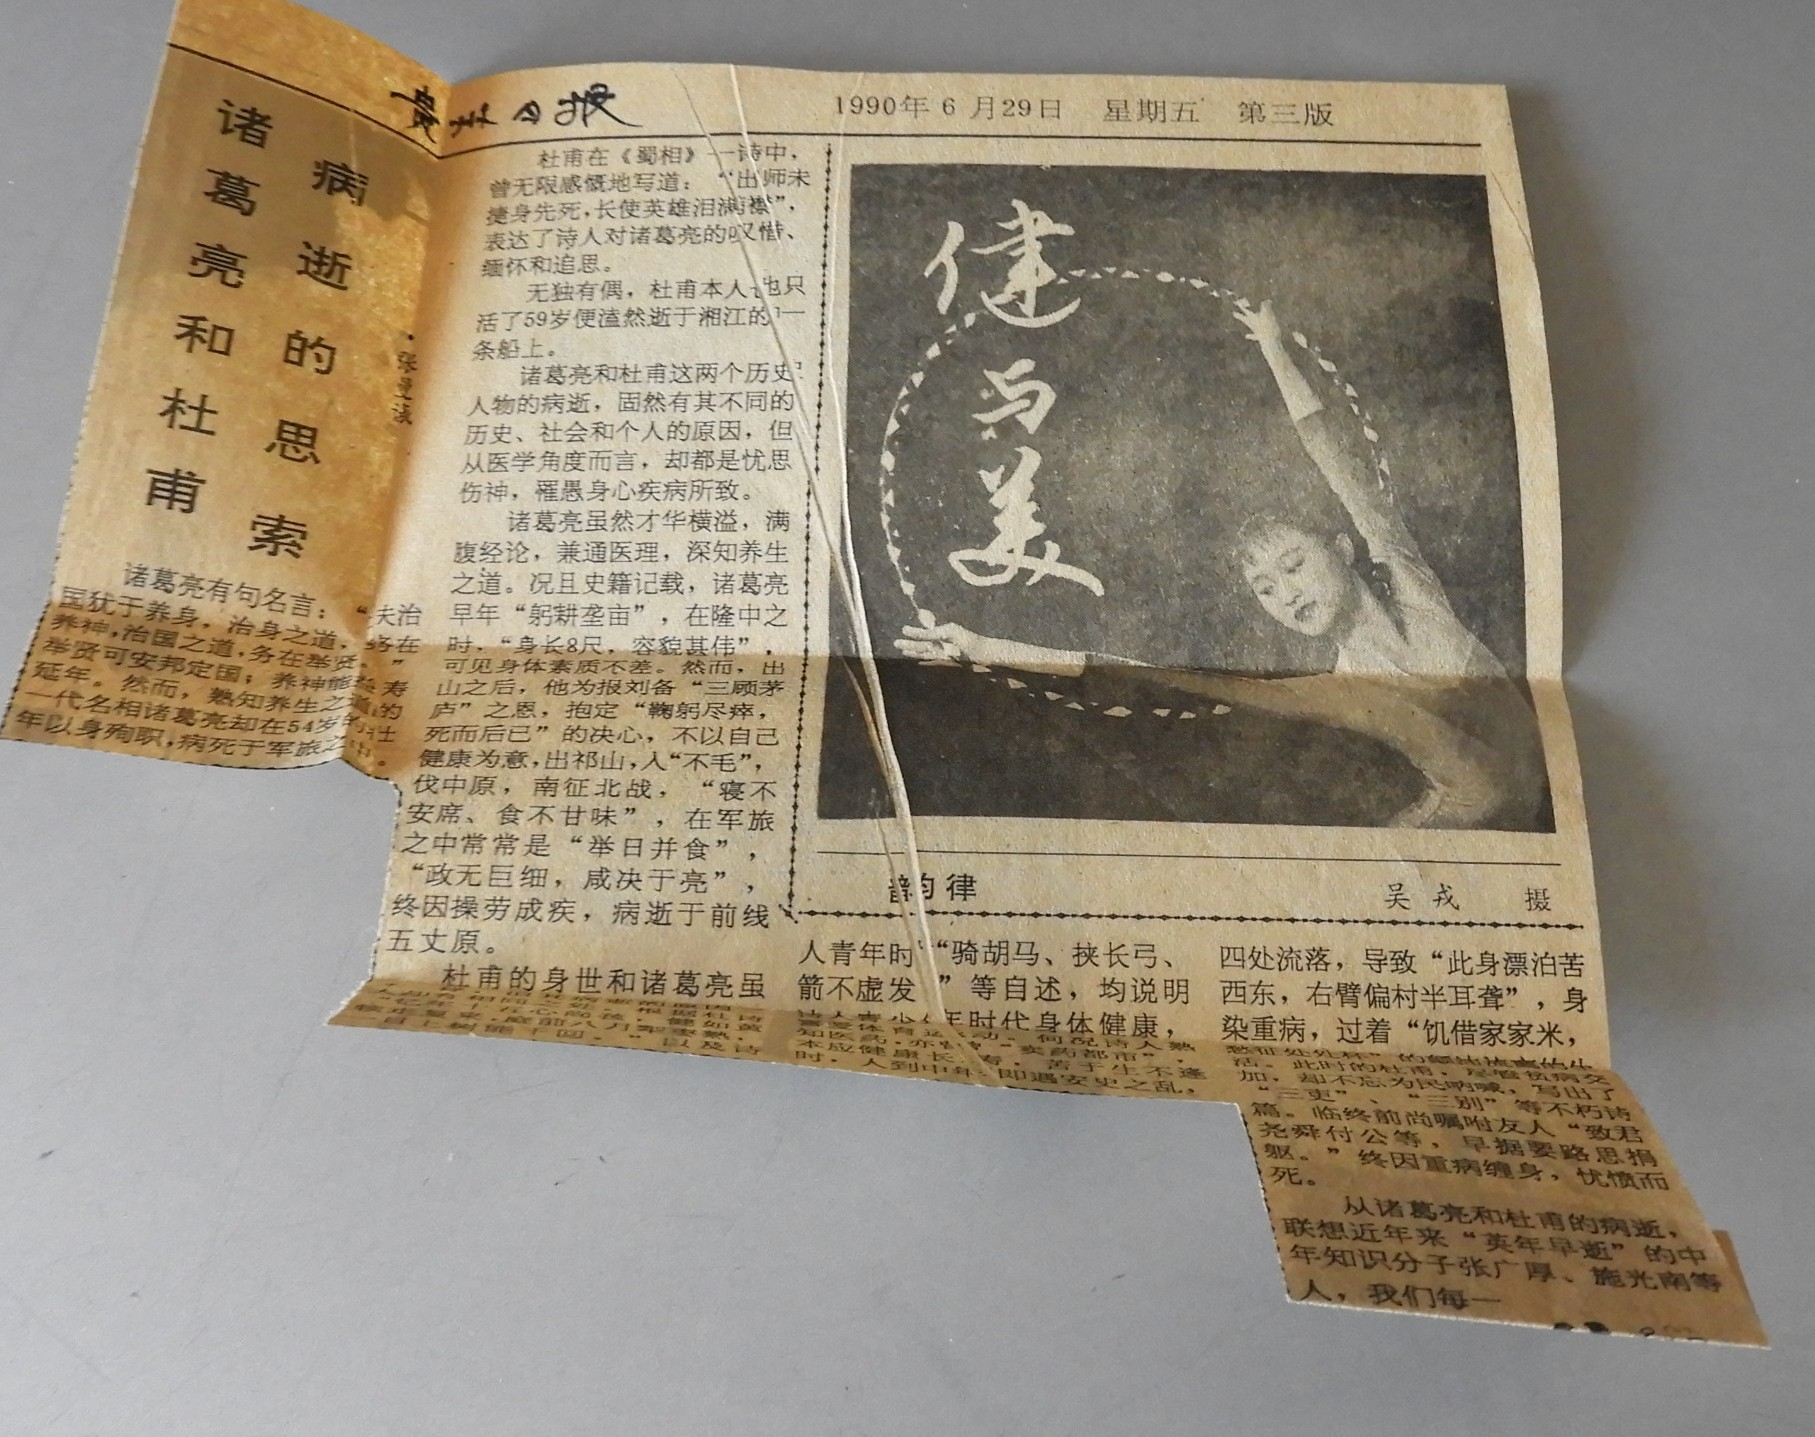 贵州日报
1990年6月29日 星期五 第三版
诸葛亮和杜甫
病逝的思索
诸葛亮有句名言：“夫治
国犹于养身，治身之道，务在
养神，治国之道，务在举贤。”
举贤可安邦定国；养神能益寿
延年。然而，熟知养生之道的
一代名相诸葛亮却在54岁的壮
年以身殉职，病死于军旅之中。
杜甫在《蜀相》一诗中，
曾无限感慨地写道：“出师未
捷身先死，长使英雄泪满襟”，
表达了诗人对诸葛亮的叹惜、
缅怀和追思。
无独有偶，杜甫本人也只
活了59岁便溘然逝于湘江的一
条船上。
诸葛亮和杜甫这两个历史
人物的病逝，固然有其不同的
历史、社会和个人的原因，但
从医学角度而言，却都是忧思
伤神，罹愚身心疾病所致。
诸葛亮虽然才华横溢，满
腹经论，兼通医理，深知养生
之道。况且史籍记载，诸葛亮
早年“躬耕垄亩”，在隆中之
时，“身长8尺，容貌甚伟”，
可见身体素质不差。然而，出
山之后，他为报刘备“三顾茅
庐”之恩，抱定“鞠躬尽瘁，
死而后已”的决心，不以自己
健康为意，出祁山，入“不毛”，
伐中原，南征北战，“寝不
安席、食不甘味”，在军旅
之中常常是“举日并食”，
“政无巨细，咸决于亮”，
终因操劳成疾，病逝于前线
五丈原。
杜甫的身世和诸葛亮虽
健如黄
犊走复来，庭前八月梨枣熟，
一日上树能千回。”以及诗
健与美
韵律
吴戎 摄
人青年时“骑胡马、挟长弓、
箭不虚发”等自述，均说明
诗人青少年时代身体健康，
喜爱体育运动。何况诗人熟
知医药，亦曾“卖药都市”，
本应健康长寿，苦于生不逢
时，人到中年，即遇安史之乱，
四处流落，导致“此身漂泊苦
西东，右臂偏村半耳聋”，身
染重病，过着“饥借家家米，
愁征处处杯”的
活。此时的杜甫，尽管贫病交
加，却不忘为民呐喊，写出了
“三吏”、“三别”等不朽诗
篇。临终前尚嘱咐友人“致君
尧舜付公等，早据要路思捐
躯。”终因重病缠身，忧愤而
死。
从诸葛亮和杜甫的病逝，
联想近年来“英年早逝”的中
年知识分子张广厚、施光南等
人，我们每一